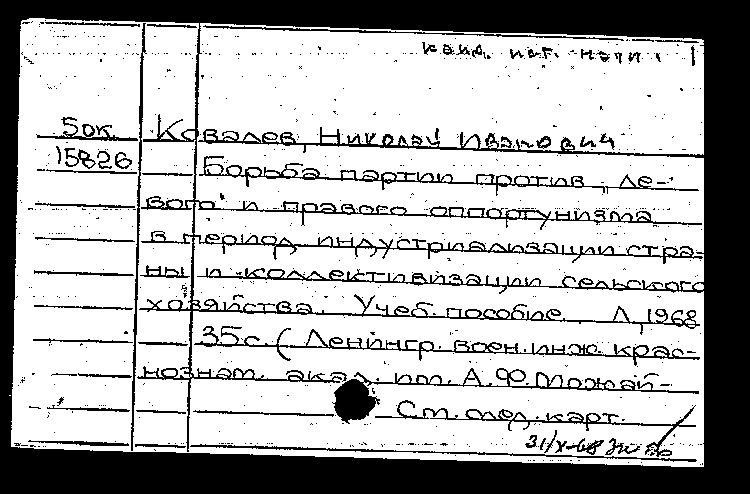 канд. ист. наук
5ок. Ковалев, Николай Иванович
15826 Борьба партии против „ле-
вого“ и правого оппортунизма
в период индустриализации стра-
ны и коллективизации сельского
хозяйства. Учеб. пособие. Л, 1968
35с. (Ленингр. воен. инж. крас-
нознам. акад. им. А.Ф. Можай-
См. след. карт.
31/X-68